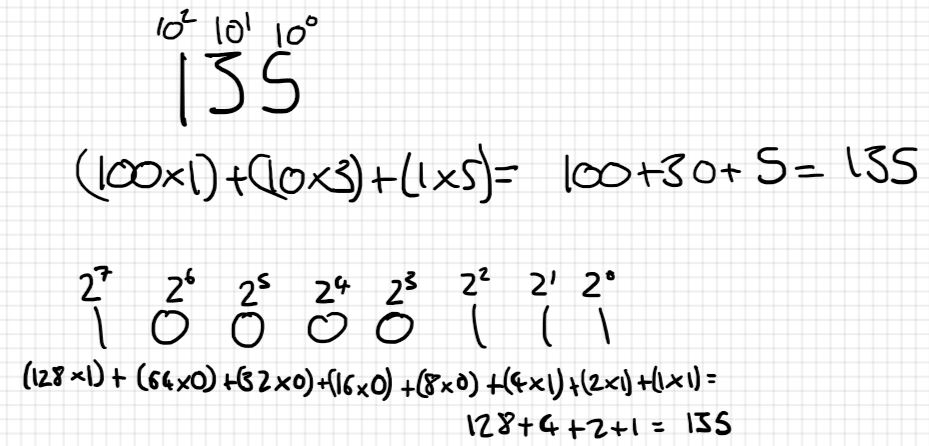 10² 10¹ 10⁰
1 3 5
(100×1)+(10×3)+(1×5)= 100+30+5=135
2⁷ 2⁶ 2⁵ 2⁴ 2³ 2² 2¹ 2⁰
1 0 0 0 0 1 1 1
(128×1)+(64×0)+(32×0)+(16×0)+(8×0)+(4×1)+(2×1)+(1×1)=
128+4+2+1=135